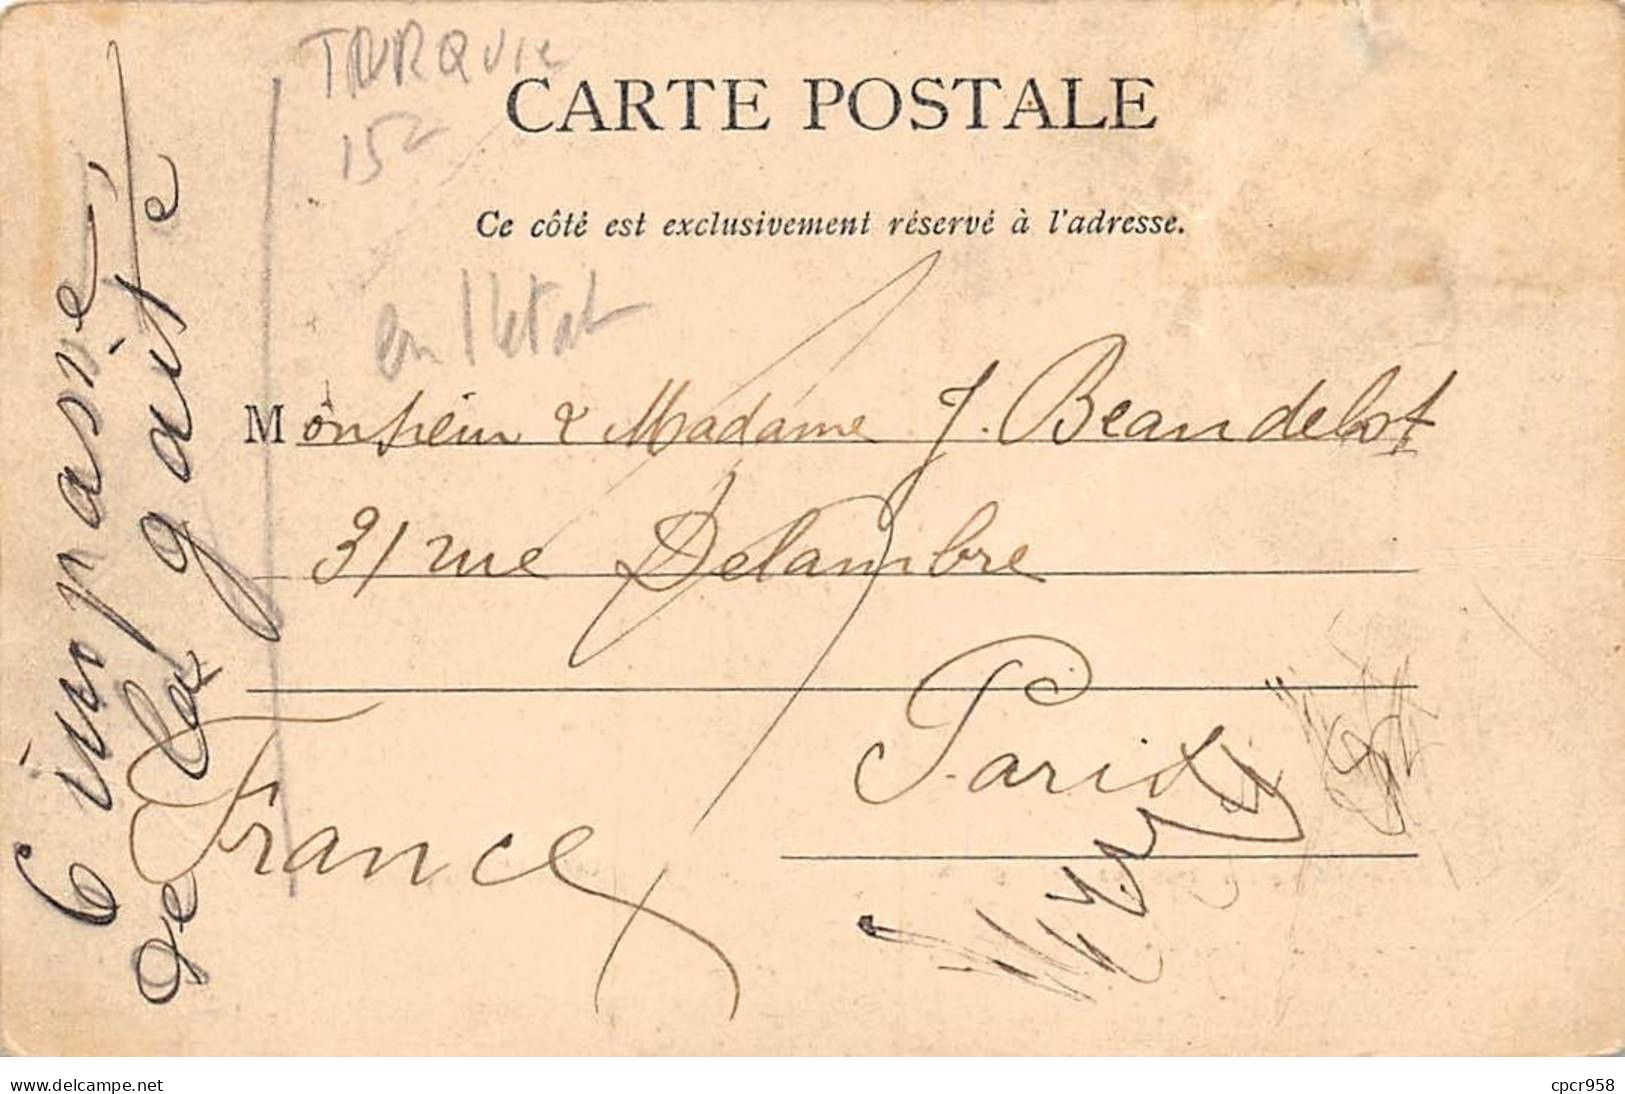 TURQUIE
15
CARTE POSTALE
Ce côté est exclusivement réservé à l'adresse.
en l'état
Monsieur & Madame J. Beaudelot
31 rue Delambre
Paris
France
6 impasse
de la gaité
www.delcampe.net
cpcr958